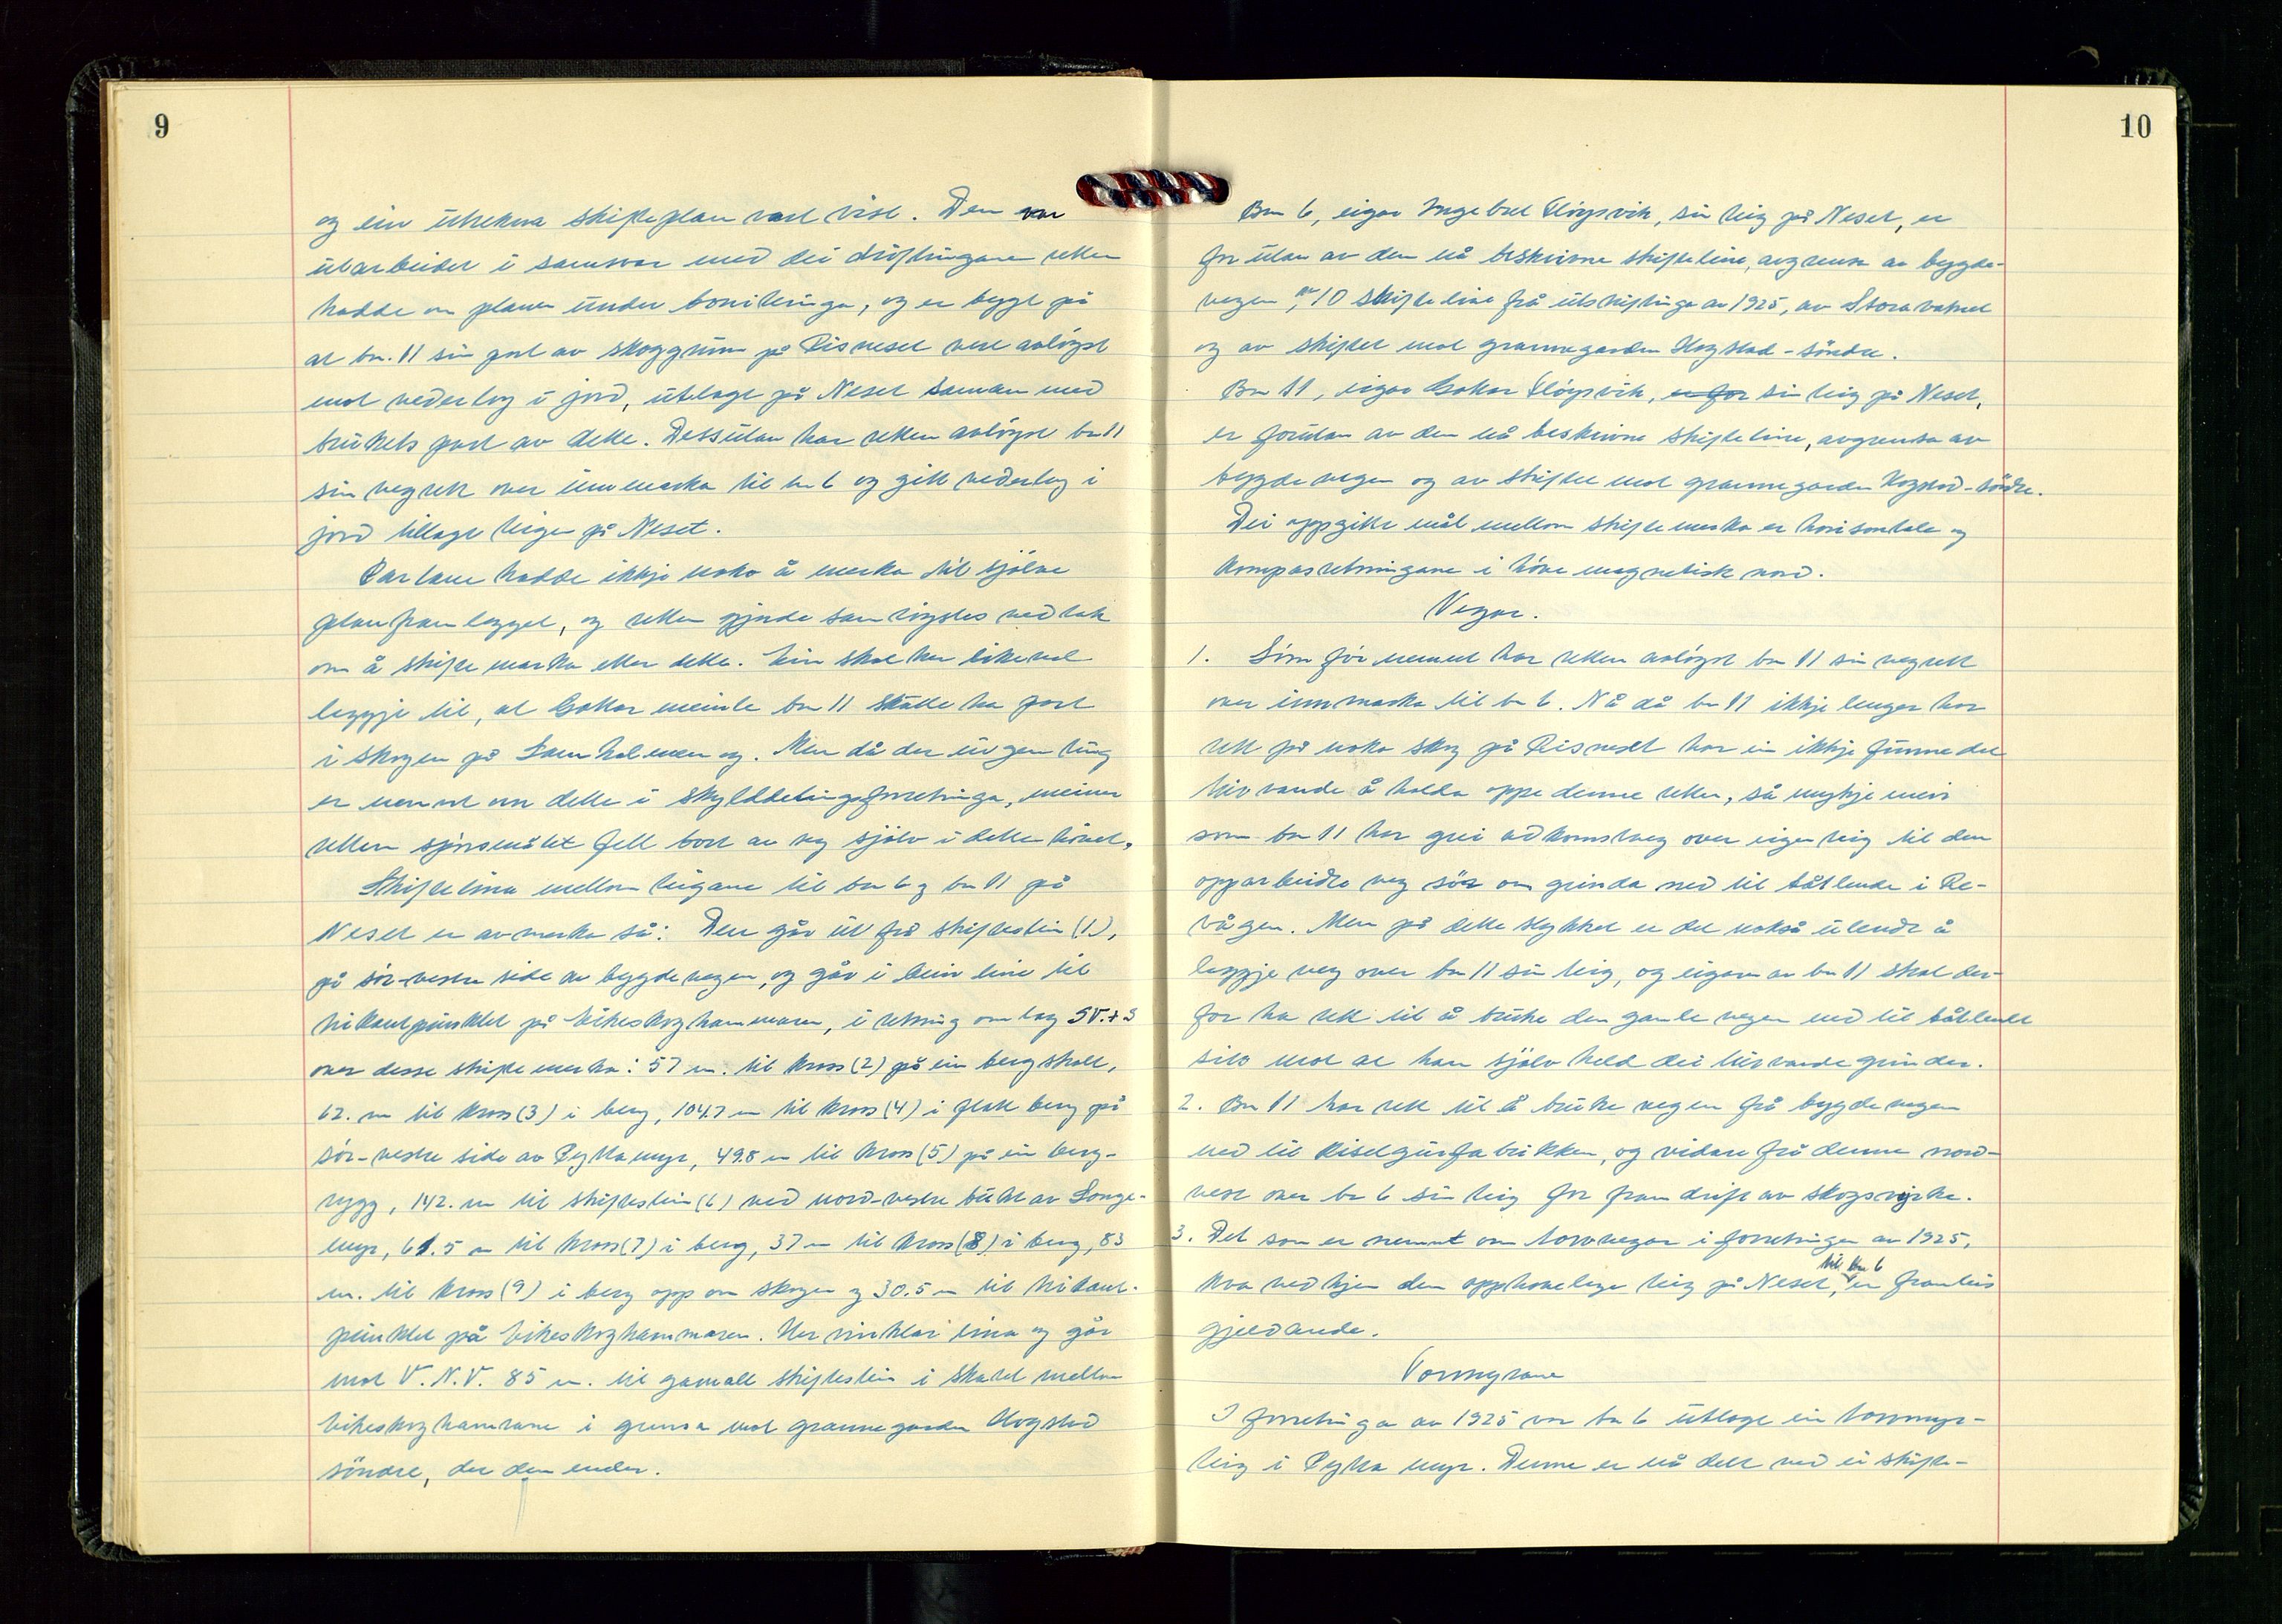 9
og ein utrekna skifteplan vart vist. Den var
utarbeidet i samsvar med dei dröftingane retten
hadde om planen under boniteringa, og er bygt på
at bn. 11 sin part av skoggrunn på Risneset vert avlöyst
mot vederlag i jord, utlagt på Neset saman med
brukets part av dette. Dessutan har retten avlöyst bn 11
sin vegrett over innmarka til bn 6 og gitt vederlag i
jord tillagt teigen på Neset.
Partane hadde ikkje noko å merka til sjölve
planframlegget, og retten gjorde samröystes vedtak
om å skifte marka etter dette. Ein skal her likevel
leggje til, at Gotkar meinte bn 11 skulle ha part
i skogen på holmen og. Men då der ingen ting
er nemnt om dette i skylddelingsforretninga, meiner
retten spörsmålet fell bort av seg sjölv i dette hövet.
Skiftelina mellom teigane til bn 6 og bn 11 på
Neset er avmerka så: Den går ut frå skiftestein (1),
på sör-vestre side av bygdevegen, og går i bein line til
trikantpunktet på Eikeskoghammaren, i retning om lag SV.
over desse skiftemerka: 57 m. til kross (2) på ein bergskalle,
62. m til kross (3) i berg, 104.7 m til kross (4) i flatt berg på
sör-vestre side av Pyttamyr, 49.8 m til kross (5) på ein berg-
rygg, 142. m til skiftestein (6) ved nord-vestre bukt av Longe-
myr, 61.5 m til kross (7) i berg, 37 m til kross (8) i berg, 83
m. til kross (9) i berg opp om skogen og 30.5 m til trikant-
punktet på Eikeskoghammaren. Her vinklar lina og går
mot V.N.V. 85 m. til gamall skiftestein i skaret mellom
Eikeskoghamrane i grensa mot grannegarden Hogstad
söndre, der den ender.
10
Bn 6, eigar Ingebret Flöysvik, sin teig på Neset, er
for utan av den nå beskrivne skifteline, avgrensa av bygde-
vegen, av 10 skifteline frå utskiftinga av 1925, av Storavatnet
og av skiftet mot grannegarden Hogstad-söndre.
Bn 11, eigar Flöysvik, er for sin teig på Neset,
er forutan av den nå beskrivne skifteline, avgrensa av
bygdevegen og av skiftet mot grannegarden Hogstad-söndre.
Dei oppgitte mål mellom skiftemerka er horisontale og
kompasretningane i höve magnetisk nord.
Vegar.
1. Som för nemnt har retten avlöyst bn 11 sin vegrett
over innmarka til bn 6. Nå då bn 11 ikkje lenger har
rett på noko skog på Risneset har ein ikkje funne det
turvande å halda oppe denne retten, så mykje meir
som bn 11 har grei adkomstveg over eigen teig til den
opparbeidde veg sör om grinda ned til båtlende i Re-
vågen. Men på dette stykket er det nokså ulendt å
leggje veg over bn 11 sin teig, og eigaren av bn 11 skal der-
for ha rett til å bruke den gamle vegen ned til båtlende
sitt mot at han sjölv held dei turvande grinder.
2. Bn 11 har rett til å bruke vegen frå bygdevegen
ned til Kiselgurfabrikken, og vidare frå denne nord-
vest over bn 6 sin teig for framdrift av skogsvyrke.
3. Det som er nemnt om torvvegar i forretningen av 1925,
kva vedkjem den opphavelege teig på Neset, til bn 6 er framleis
gjeldande.
Torvmyrane
I forretninga av 1925 var bn 6 utlagt ein torvmyr-
teig i Pyttamyr. Denne er nå delt ved ei skifte-